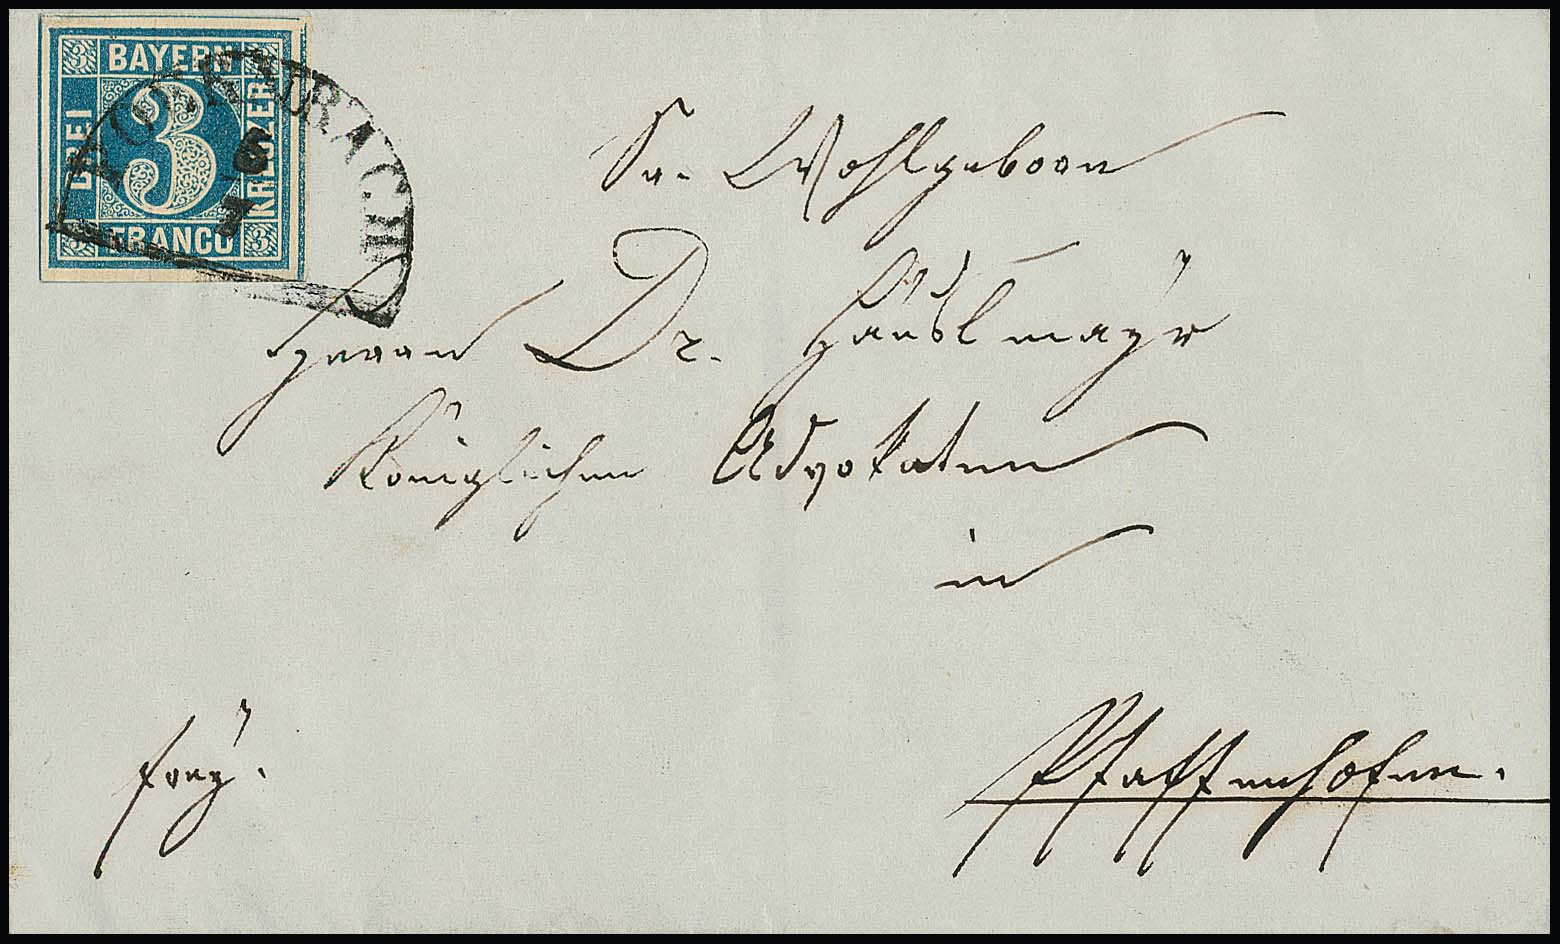 3 BAYERN 3
DREI 3 KREUZER
3 FRANCO 3
6
7
Sr. Wohlgeborn
Herrn Dr. Häuslmayr
Königlichen Advokaten
in
Pfaffenhofen.